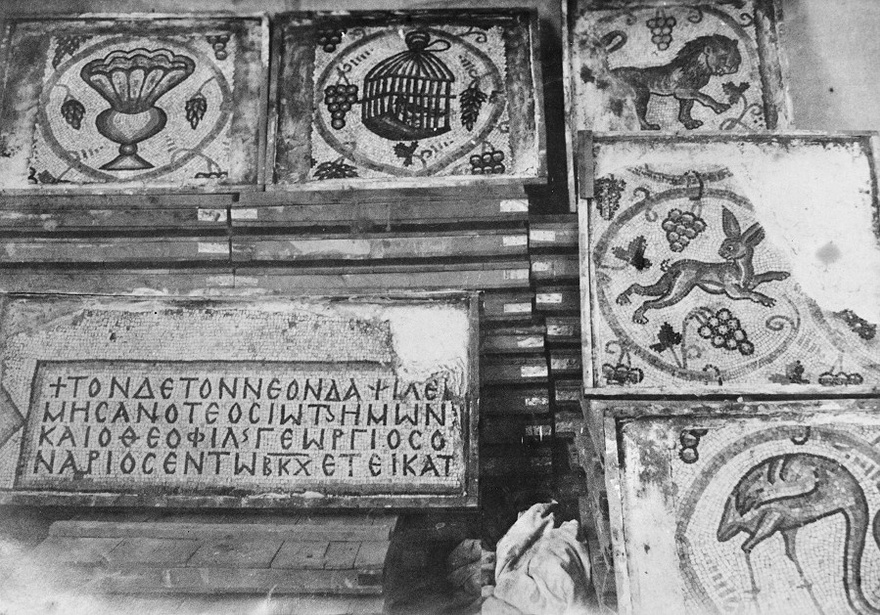 +ΤΟΝΔΕΤΟΝΝΕΟΝΔΑΨΙΛΕΙ
ΜΗCΑΝΟΤΕΟCΙⲰΤSΗΜⲰΝ
ΚΑΙΟΘΕΟΦΙΛSΓΕⲰΡΓΙΟCΟ
ΝΑΡΙΟCΕΝΤⲰΒΚΧΕΤΕΙΚΑΤ